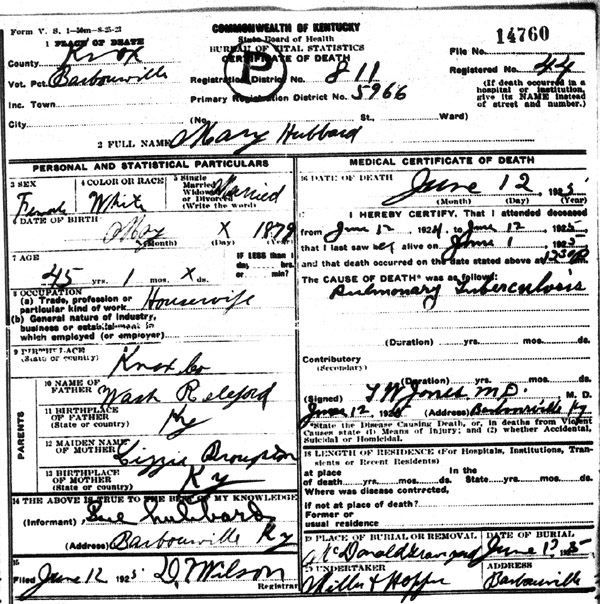 Form V. S. 1
COMMONWEALTH OF KENTUCKY
State Board of Health
BUREAU OF VITAL STATISTICS
CERTIFICATE OF DEATH
14760
File No.
1 PLACE OF DEATH
County Knox
Vot. Pct. Barbourville
Inc. Town
City
P
Registration District No. 811
Primary Registration District No. 5966
Registered No. 44
(If death occurred in a hospital or institution, give its NAME instead of street and number.)
(No. St., Ward)
2 FULL NAME Mary Hubbard
PERSONAL AND STATISTICAL PARTICULARS
3 SEX
Female
4 COLOR OR RACE
White
5 Single
Married
Widowed
or Divorced
(Write the word)
Married
6 DATE OF BIRTH
May X 1879
(Month) (Day) (Year)
7 AGE
45 yrs. 1 mos. X ds.
IF LESS than 1
day hrs.
or min.?
8 OCCUPATION
(a) Trade, profession or
particular kind of work Housewife
(b) General nature of industry,
business or establishment in
which employed (or employer)
9 BIRTHPLACE
(State or country)
Knox Co
PARENTS
10 NAME OF
FATHER
Wash Releford
11 BIRTHPLACE
OF FATHER
(State or country)
Ky
12 MAIDEN NAME
OF MOTHER
Lizzie
13 BIRTHPLACE
OF MOTHER
(State or country)
Ky
14 THE ABOVE IS TRUE TO THE BEST OF MY KNOWLEDGE
(Informant) Hubbard
(Address) Barbourville Ky
15
Filed June 12 1925 D. Wilson
Registrar
MEDICAL CERTIFICATE OF DEATH
16 DATE OF DEATH
June 12 1925
(Month) (Day) (Year)
17
I HEREBY CERTIFY, That I attended deceased
from June 12 1924 to June 12 1925
that I last saw her alive on June 1 1925
and that death occurred on the date stated above at
The CAUSE OF DEATH* was as follows:
Pulmonary Tuberculosis
(Duration) yrs. mos. ds.
Contributory
(Secondary)
(Duration) yrs. mos. ds.
(Signed) T W Jones M.D. M. D.
June 12 1925 (Address) Barbourville Ky
*State the Disease Causing Death, or, in deaths from Violent
Causes state (1) Means of Injury; and (2) whether Accidental,
Suicidal or Homicidal.
18 LENGTH OF RESIDENCE (For Hospitals, Institutions, Transients or Recent Residents)
At place In the
of death yrs. mos. ds. State yrs. mos. ds.
Where was disease contracted,
if not at place of death?
Former or
usual residence
19 PLACE OF BURIAL OR REMOVAL
McDonald Graveyard
DATE OF BURIAL
June
20 UNDERTAKER
Miller & Hopper
ADDRESS
Barbourville